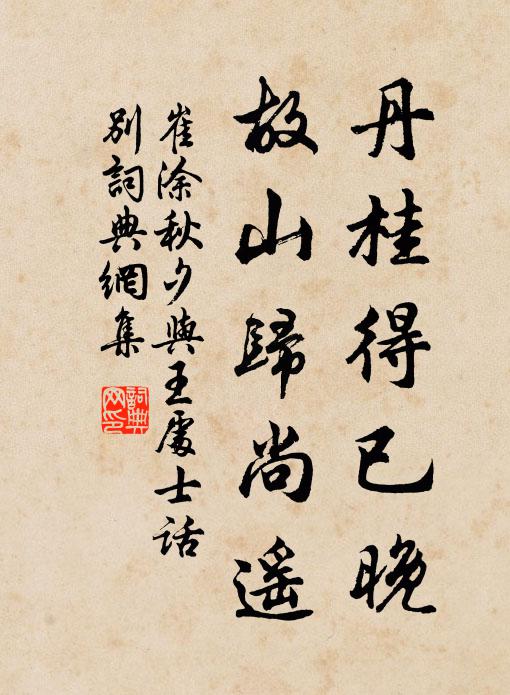 丹桂得已晚
故山歸尚遥
崔涂秋夕與王處士話
别詞典網集
詞典
网印